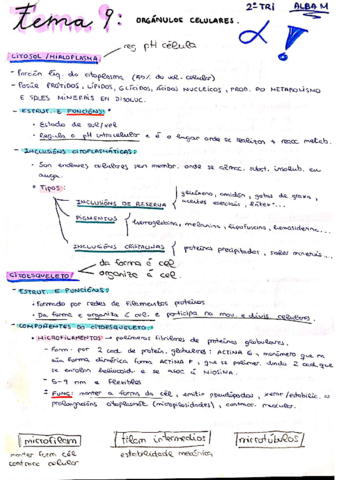 Tema 9: ORGÁNULOS CELULARES.
2º TRI ALBA M
reg pH célula
CITOSOL / HIALOPLASMA
- Porción líq. do citoplasma (50% do vol. celular)
- Posúe PRÓTIDOS, LÍPIDOS, GLÍCIDOS, ÁCIDOS NUCLEICOS, PROD. DO METABOLISMO
E SALES MINERAIS EN DISOLUC.
- ESTRUT. E FUNCIÓNS:
• Estado de sol/xel
• Regula o pH intracelular e é o lugar onde se realizan reacc metab.
- INCLUSIÓNS CITOPLASMÁTICAS:
• Son enclaves celulares sen membr. onde se almac. subst. insolub. en
auga.
• Tipos:
INCLUSIÓNS DE RESERVA
glucóxeno, amidón, gotas de graxa,
aceites esenciais, látex...
PIGMENTOS
hemoglobina, melanina, lipofuscina, hemosiderina...
INCLUSIÓNS CRISTALINAS
proteínas precipitadas, sales minerais...
CITOESQUELETO
da forma á cel
organiza é cel.
- ESTRUT. E FUNCIÓNS:
• Formado por redes de filamentos proteicos
• Da forma e organiza á cel. e participa no mov. e divis. celulares.
- COMPOÑENTES DO CITOESQUELETO:
• MICROFILAMENTOS → polímeros fibrilares de proteínas globulares.
- Form. por 2 cad. de proteín. globulares: ACTINA G, monómero que na
súa forma dimérica forma ACTINA F, que se polimer. dando 2 cad. que
se enrolan helicoid. e se asoc á MIOSINA.
- 5-9 nm e flexibles
• FUNC: manter a forma da cél, emitir pseudópodos, xerar/estabiliz. as
prolongacións citoplasmát (microvilosidades), contracc. muscular.
microfilam
manter form cél
contracc celular
filam intermedios
estabilidade mecánica
microtúbulos